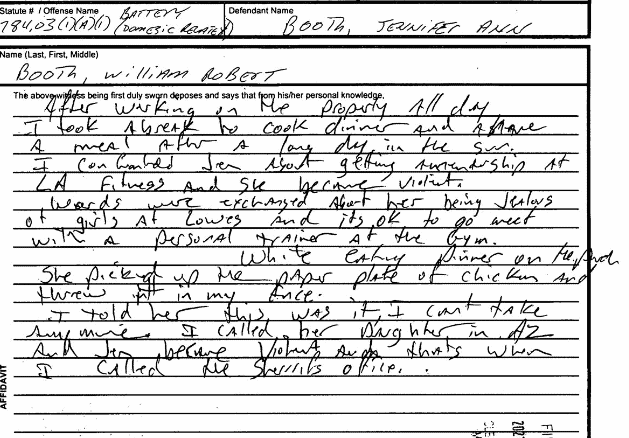 Statute # / Offense Name
BATTERY
Defendant Name
784.03(1)(A)(1) (DOMESTIC RELATED)
BOOTH, JENNIFER ANN
Name (Last, First, Middle)
BOOTH, William ROBERT
The above witness being first duly sworn deposes and says that from his/her personal knowledge,
After working on the property All day
I took A break to cook dinner and
A meal After A long day in the sun.
I confronted Jen About getting membership at
LA Fitness and she became violent.
Words were exchanged About her being Jealous
of girls At Lowes and its ok to go meet
with A personal trainer at the Gym.
White eating dinner on the porch
She picked up the paper plate of chicken and
threw it in my face.
I told her this was it, I cant take
anymore. I called her Daughter in AZ
And Jen became Violent thats when
I Called the Sherriffs office.
AFFIDAVIT